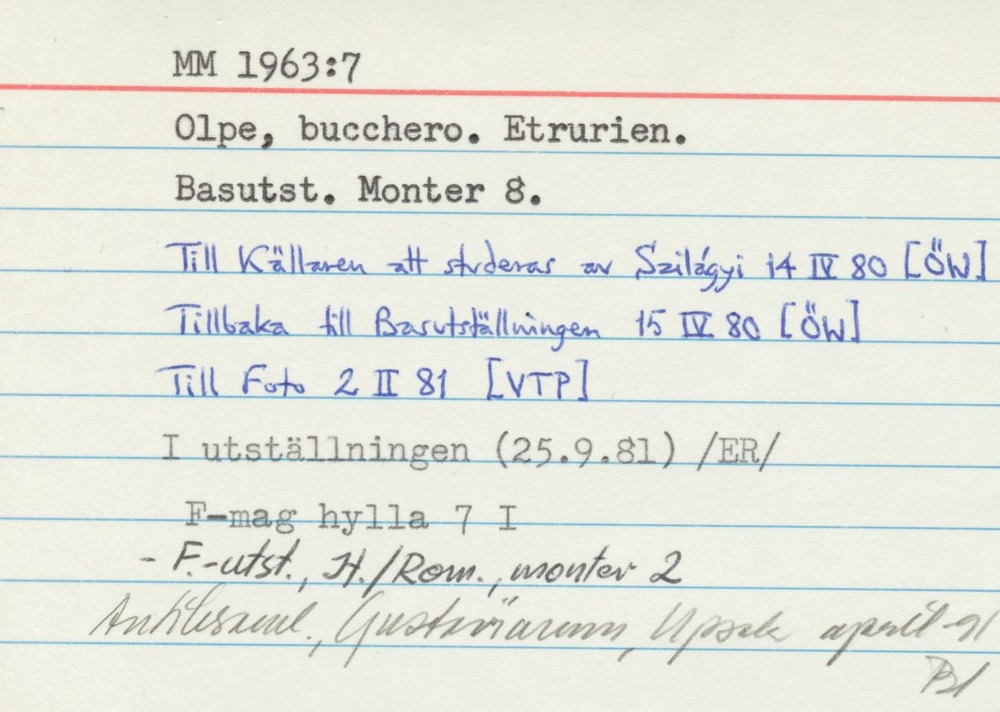 MM 1963:7
Olpe, bucchero. Etrurien.
Basutst. Monter 8.
Till Källaren att studeras av Szilágyi 14 IV 80 [ÖW]
Tillbaka till Basutställningen 15 IV 80 [ÖW]
Till Foto 2 II 81 [VTP]
I utställningen (25.9.81) /ER/
F-mag hylla 7 I
- F.-utst., H./Rom., monter 2
Antiksaml., Gustavianum, Upsala april -91